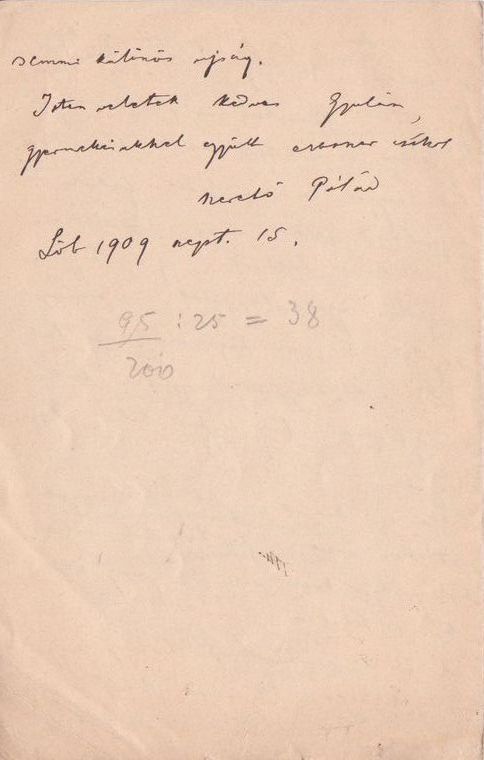 semmi különös ujság.
Isten veletek kedves Gyulám,
gyermekeinkkel együtt csókol
szerető Pálod
Lób 1909 sept. 15.
95 : 25 = 38
200